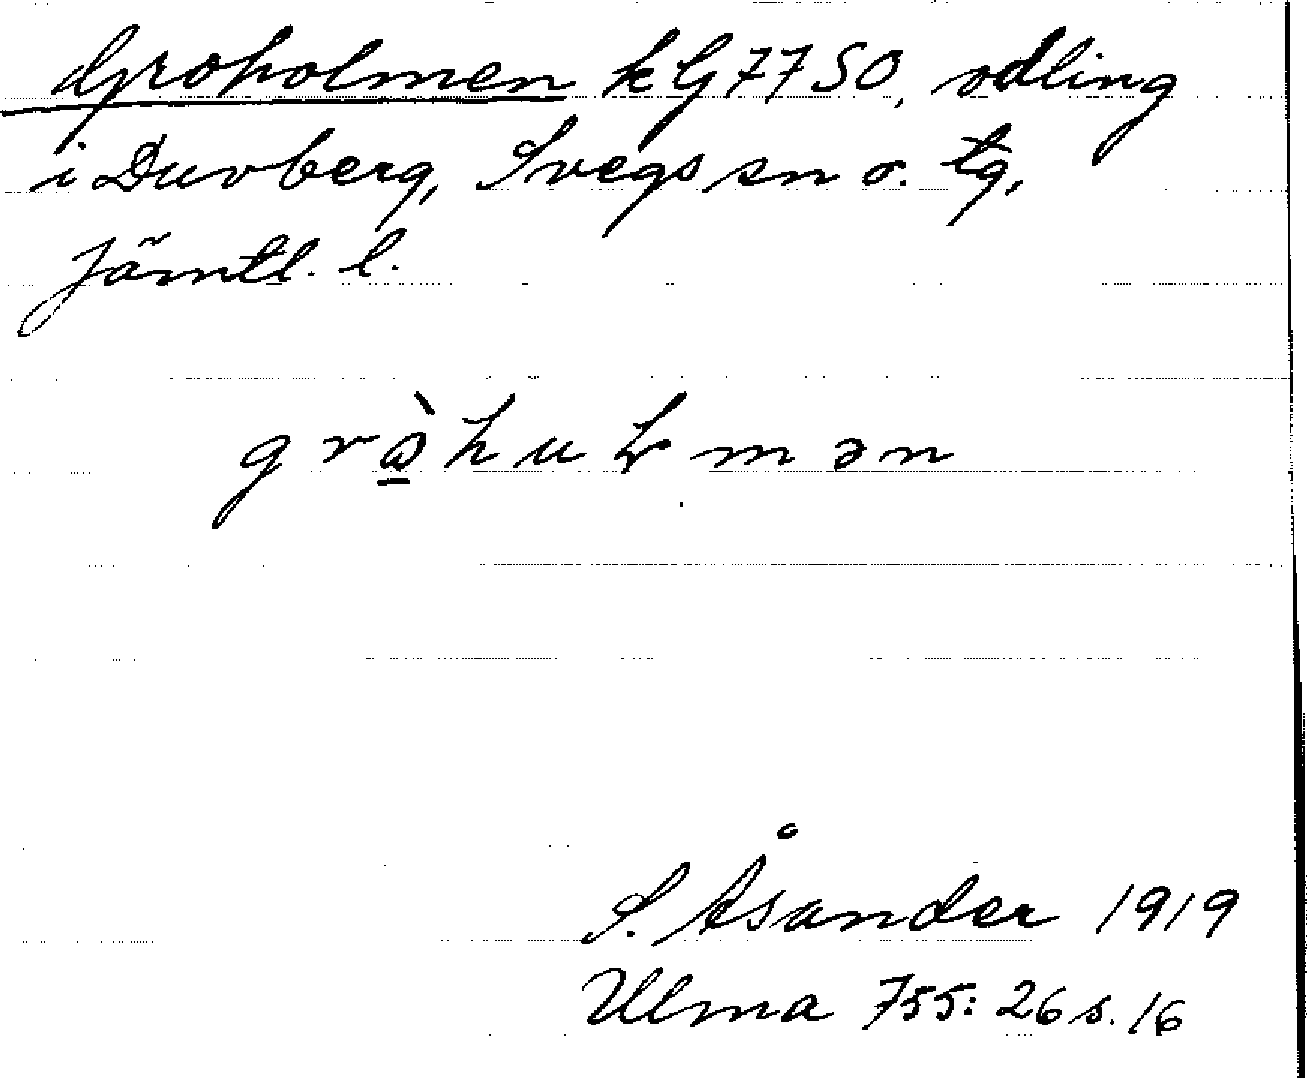 Groholmen kG 77 SO, odling
i Duvberg, Svegs sn o. tg,
Jämtl. l.
S. Åsander 1919
Ulma 755: 26 s. 16